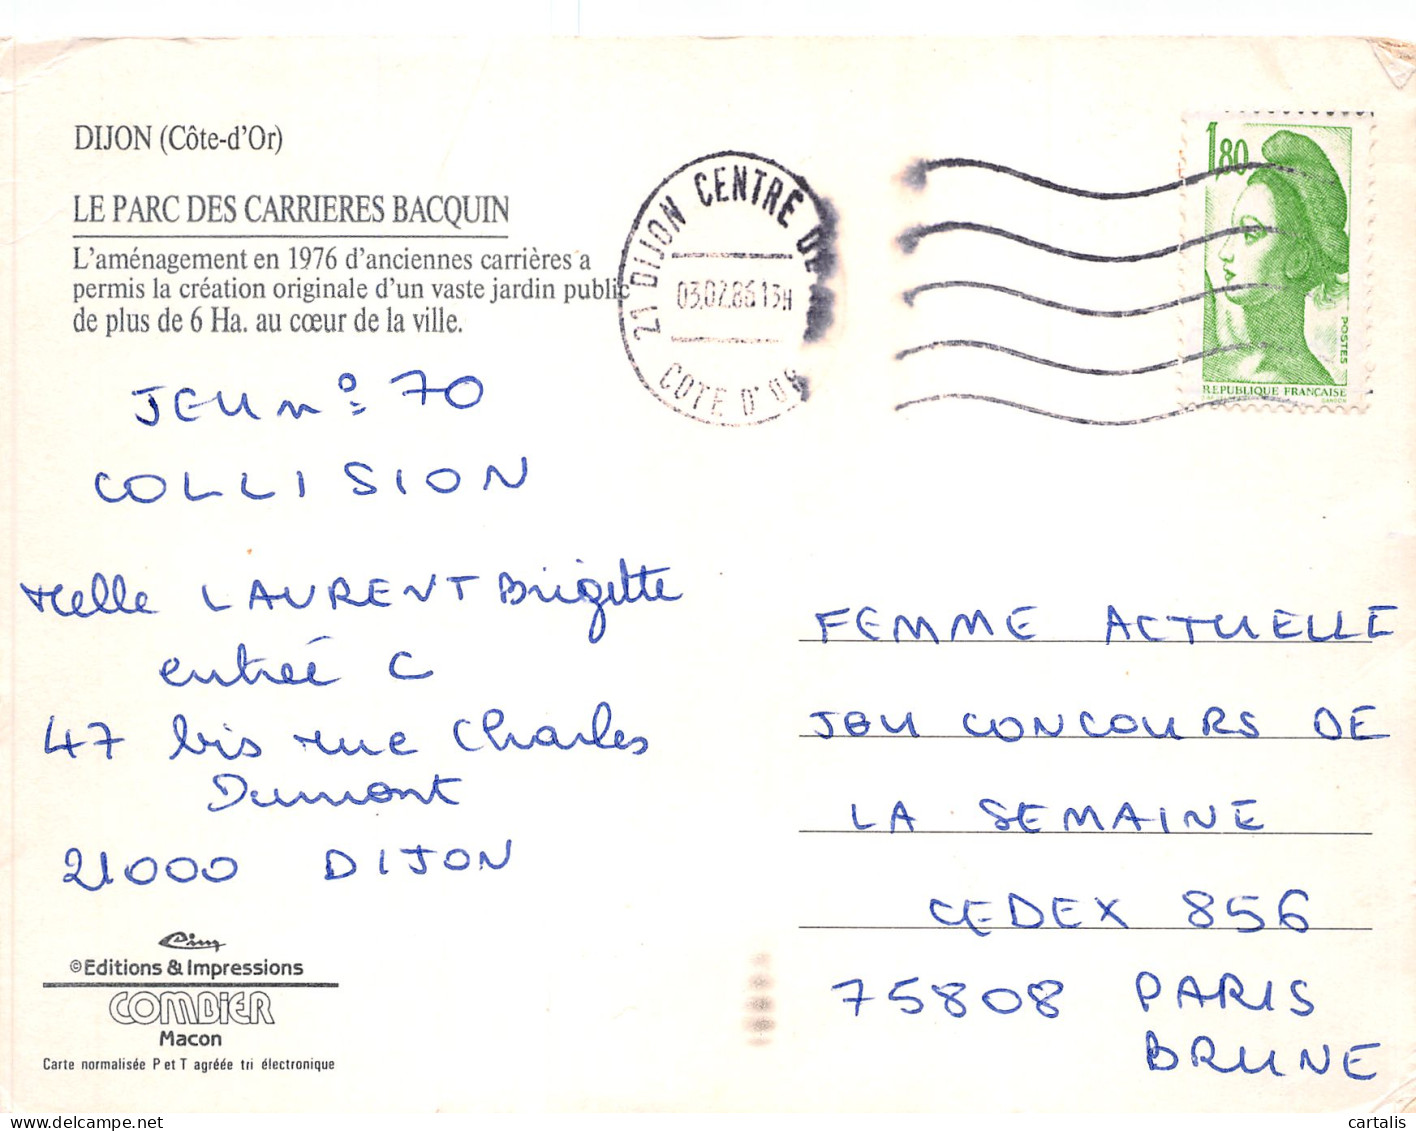 DIJON (Côte-d'Or)
LE PARC DES CARRIERES BACQUIN
L'aménagement en 1976 d'anciennes carrières a
permis la création originale d'un vaste jardin public
de plus de 6 Ha. au cœur de la ville.
21 DIJON CENTRE DE
03.02.86 13H
COTE D'OR
1,80
POSTES
REPUBLIQUE FRANÇAISE
GANDON
JEU n° 70
COLLISION
Melle LAURENT Brigitte
entrée C
47 bis rue Charles
Dumont
21000 DIJON
FEMME ACTUELLE
JEU CONCOURS DE
LA SEMAINE
CEDEX 856
75808 PARIS
BRUNE
Cim
©Editions & Impressions
COMBIER
Macon
Carte normalisée P et T agréée tri électronique
cartalis